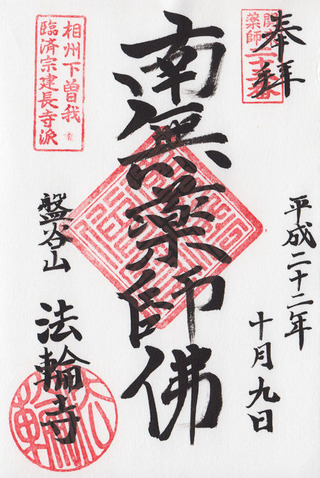 奉拝
平成二十二年
十月九日
南無薬師佛
相州下曽我
臨済宗建長寺派
盤谷山
法輪寺